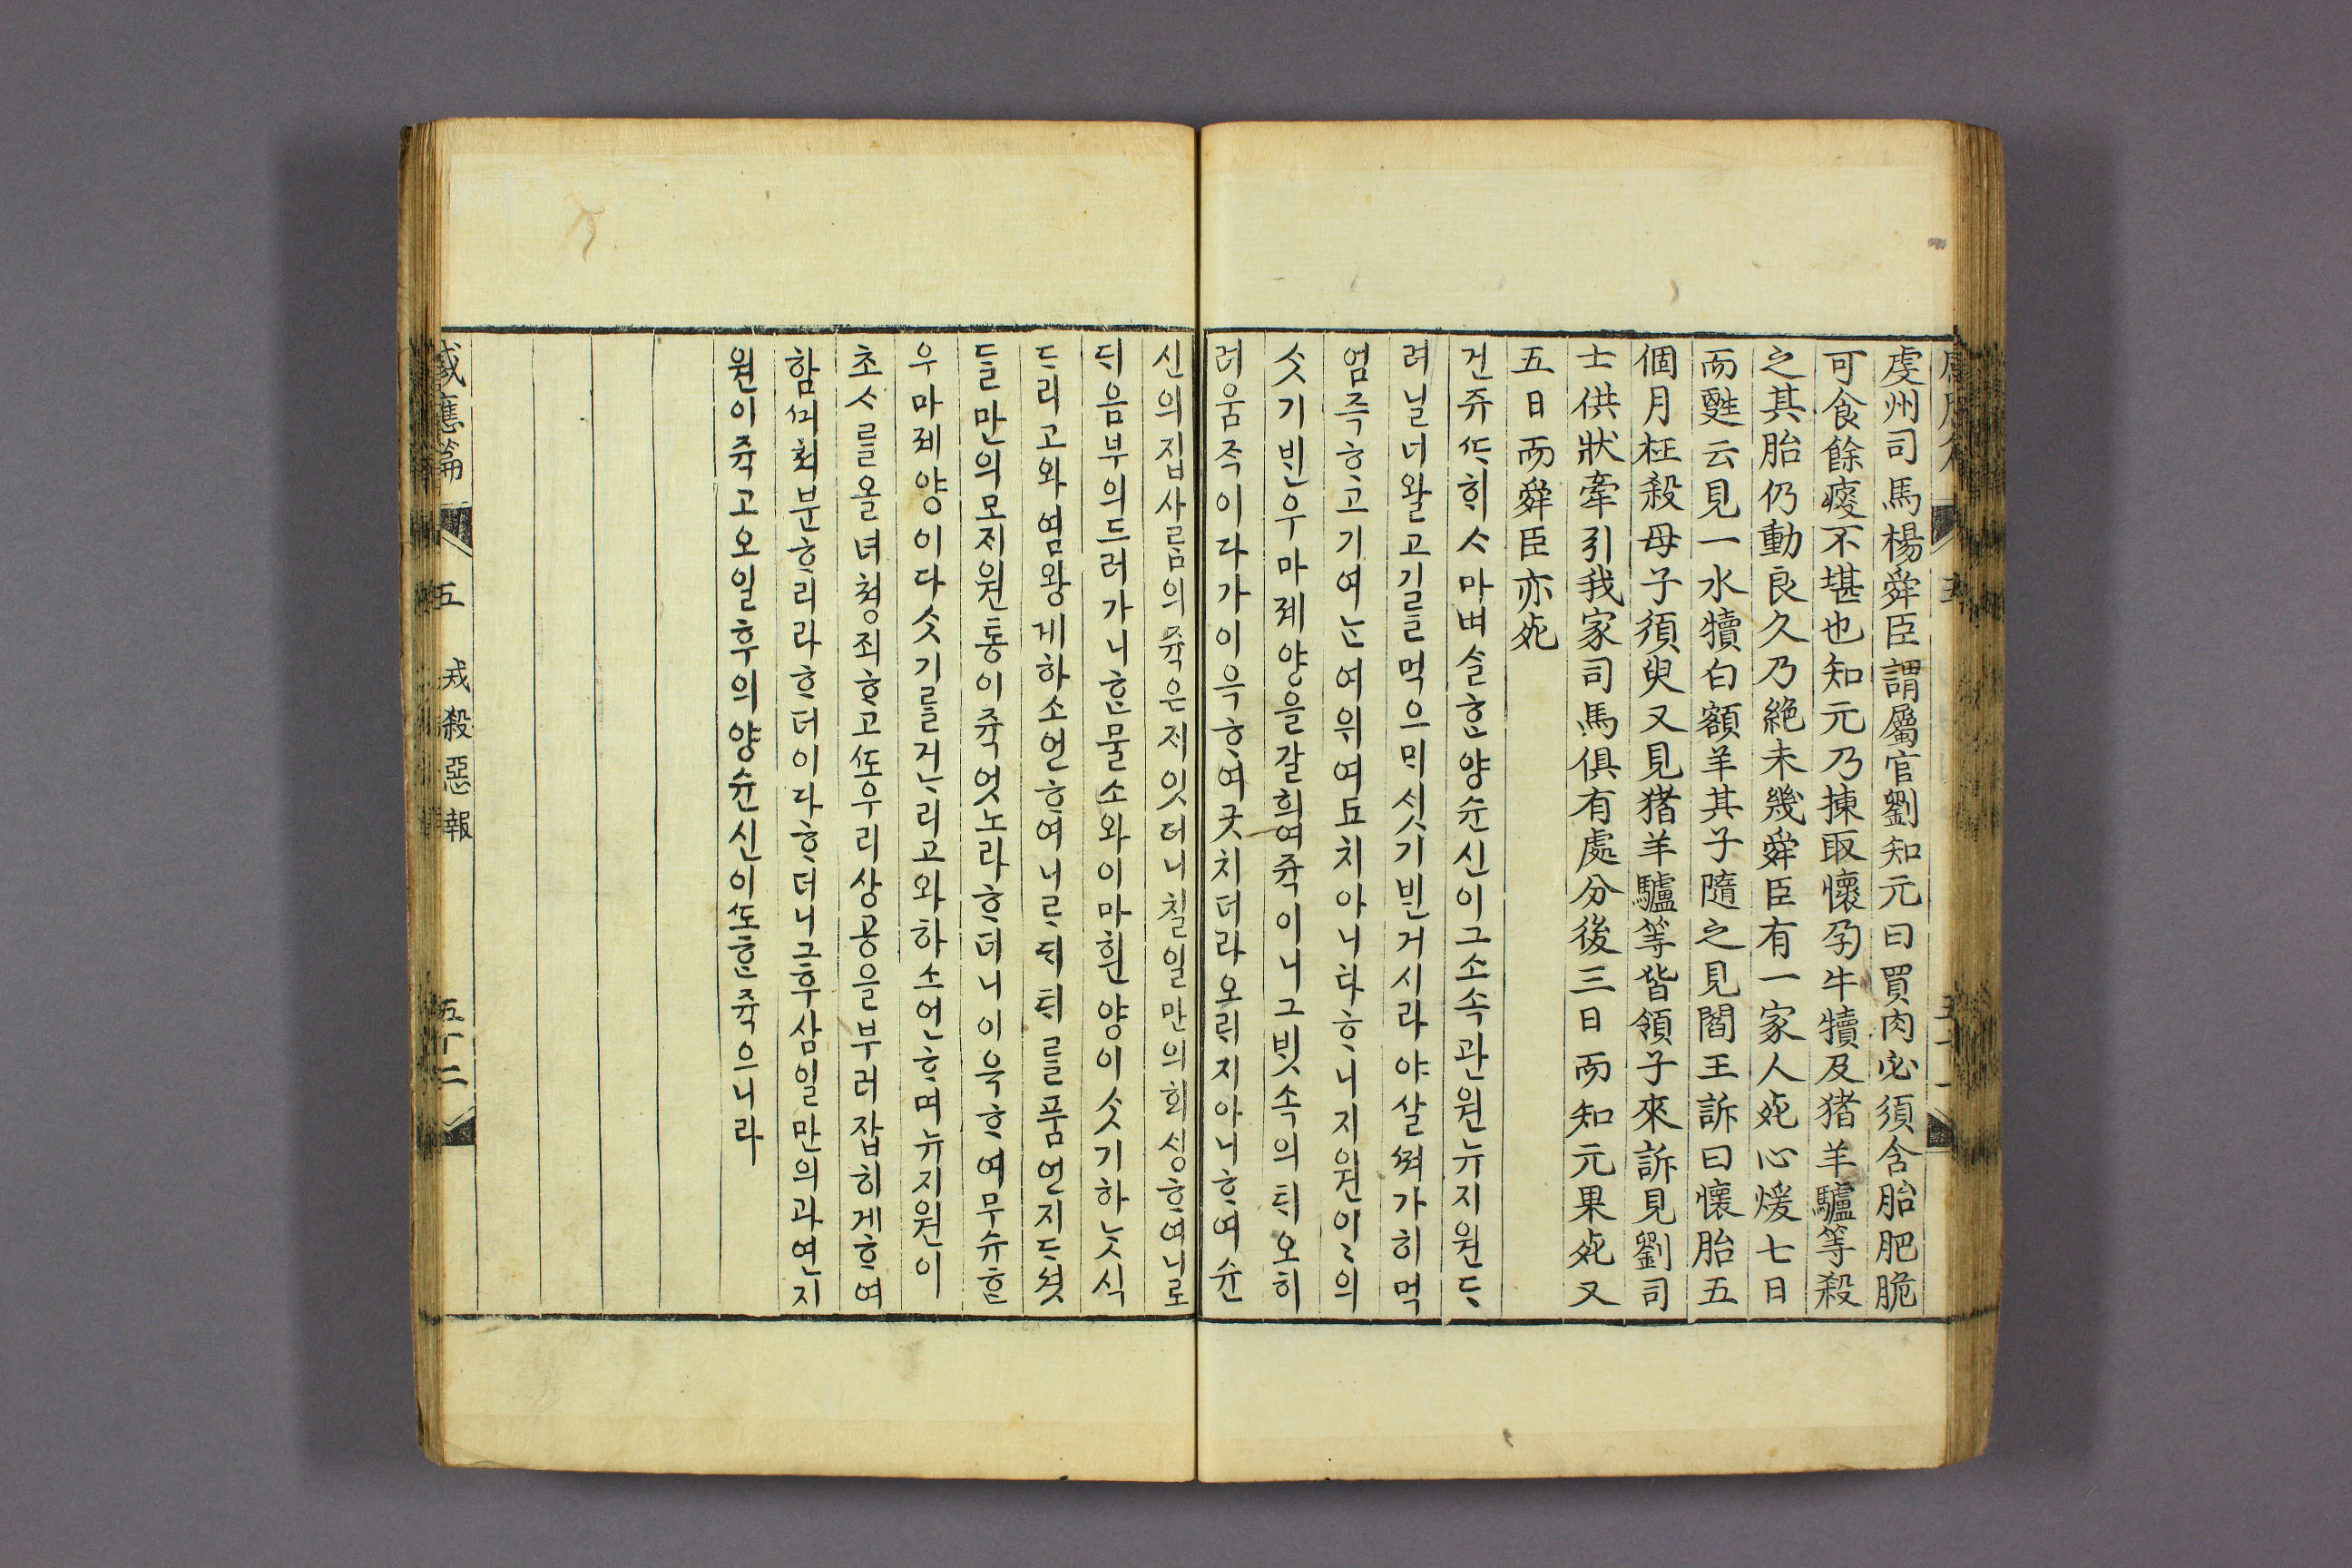 虔州司馬楊舜臣謂屬官劉知元曰買肉必須含胎肥脆
可食餘瘦不堪也知元乃揀取懷孕牛犢及猪羊驢等殺
之其胎仍動良久乃絶未幾舜臣有一家人死心煖七日
而甦云見一水犢白額羊其子隨之見閻王訴曰懷胎五
個月枉殺母子須臾又見猪羊驢等皆領子來訴見劉司
士供狀牽引我家司馬俱有處分後三日而知元果死又
五日而舜臣亦死
건쥬ᄯᅡᄒᆡᄉᆞ마벼슬ᄒᆞᆫ양슌신이그소속관원뉴지원ᄃᆞ
려닐너왈고기를먹으ᄆᆡ삿기ᄇᆡᆫ거시라야살쪄가히먹
엄즉ᄒᆞ고기여ᄂᆞᆫ여위여됴치아니타ᄒᆞ니지원이〻의
삿기ᄇᆡᆫ우마졔양을갈희여쥭이니그ᄇᆡᆺ속의ᄐᆡ오히
려움즉이다가이윽ᄒᆞ여긋치더라오ᄅᆡ지아니ᄒᆞ여슌
신의집사ᄅᆞᆷ의쥭은ᄌᆡ잇더니칠일만의회성ᄒᆞ여니로
ᄃᆡ음부의드러가니ᄒᆞᆫ물소와이마흰양이삿기하낫식
ᄃᆞ리고와염왕게하소연ᄒᆞ여니ᄅᆞᄃᆡᄐᆡ를품언지다셧
ᄃᆞᆯ만의모ᄌᆡ원통이쥭엇노라ᄒᆞ더니이윽ᄒᆞ여무슈ᄒᆞᆫ
우마졔양이다삿기를거ᄂᆞ리고와하소연ᄒᆞ며뉴지원이
초ᄉᆞ를올녀쳥죄ᄒᆞ고ᄯᅩ우리상공을부러잡히게ᄒᆞ여
함ᄭᅴ쳐분ᄒᆞ리라ᄒᆞ더이다ᄒᆞ더니그후삼일만의과연지
원이쥭고오일후의양슌신이ᄯᅩᄒᆞᆫ쥭으니라
感應篇 五 戒殺惡報 五十二